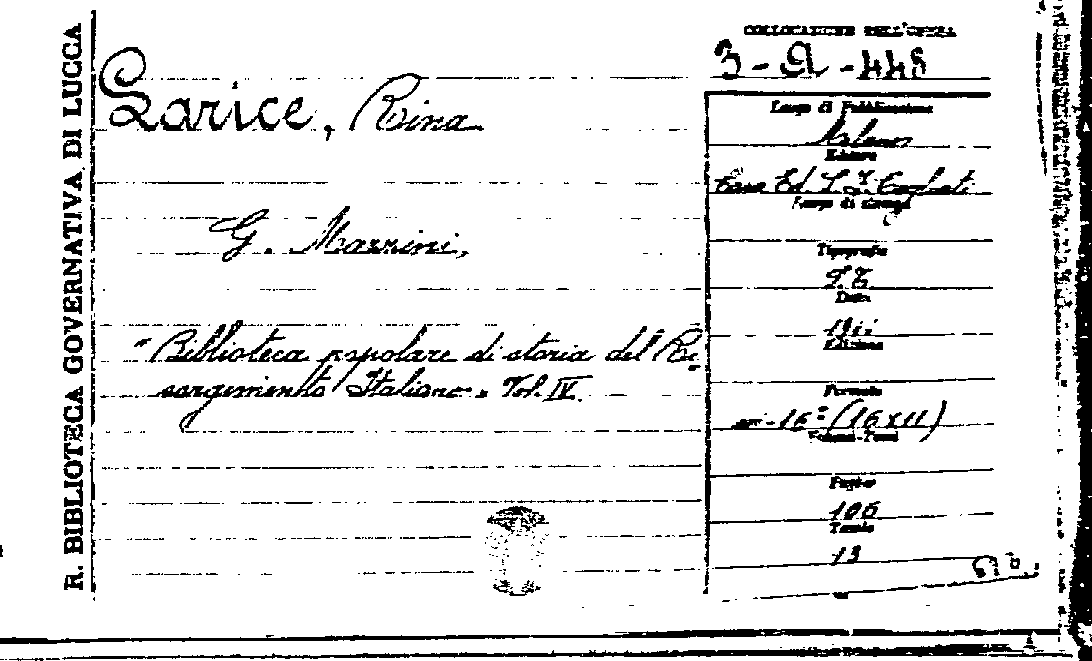 R. BIBLIOTECA GOVERNATIVA DI LUCCA
COLLOCAZIONE DELL'OPERA
3-Q-448
Larice, Rina
G. Mazzini,
"Biblioteca popolare di storia del Ri-
sorgimento Italiano". Vol. IV.
Luogo di Pubblicazione
Milano
Editore
Casa Ed. L. F.
Luogo di stampa
Tipografia
Data
Edizione
Formato
in-16° (16x11)
Volume-Tomi
Pagine
106
Tavole
13